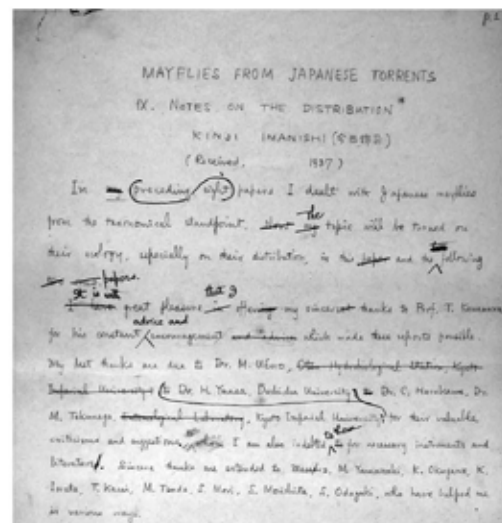 p.1
MAYFLIES FROM JAPANESE TORRENTS
IX. NOTES ON THE DISTRIBUTION*
KINJI IMANISHI (今西錦司)
(Received, 1937)
In preceding eight papers I dealt with Japanese mayflies
from the taxonomical standpoint. The topic will be turned on
their ecology, especially on their distribution, in this and the following
papers.
It is with great pleasure that I offer my sincerest thanks to Prof. T.
for his constant advice and encouragement which made these reports possible.
My best thanks are due to Dr. M. Uéno, Otsu Hydrobiological Station, Kyoto
Imperial University, to Dr. H. University, Dr. C. Harukawa, Dr.
M. Tokunaga, Entomological Laboratory, Kyoto Imperial University for their valuable
criticisms and suggestions, I am also indebted for necessary instruments and
literature. Sincere thanks are extended to M. Yamazaki, K.
T. Kani, M. S. Mori, S. Morishita, S. who have helped me
in various ways.